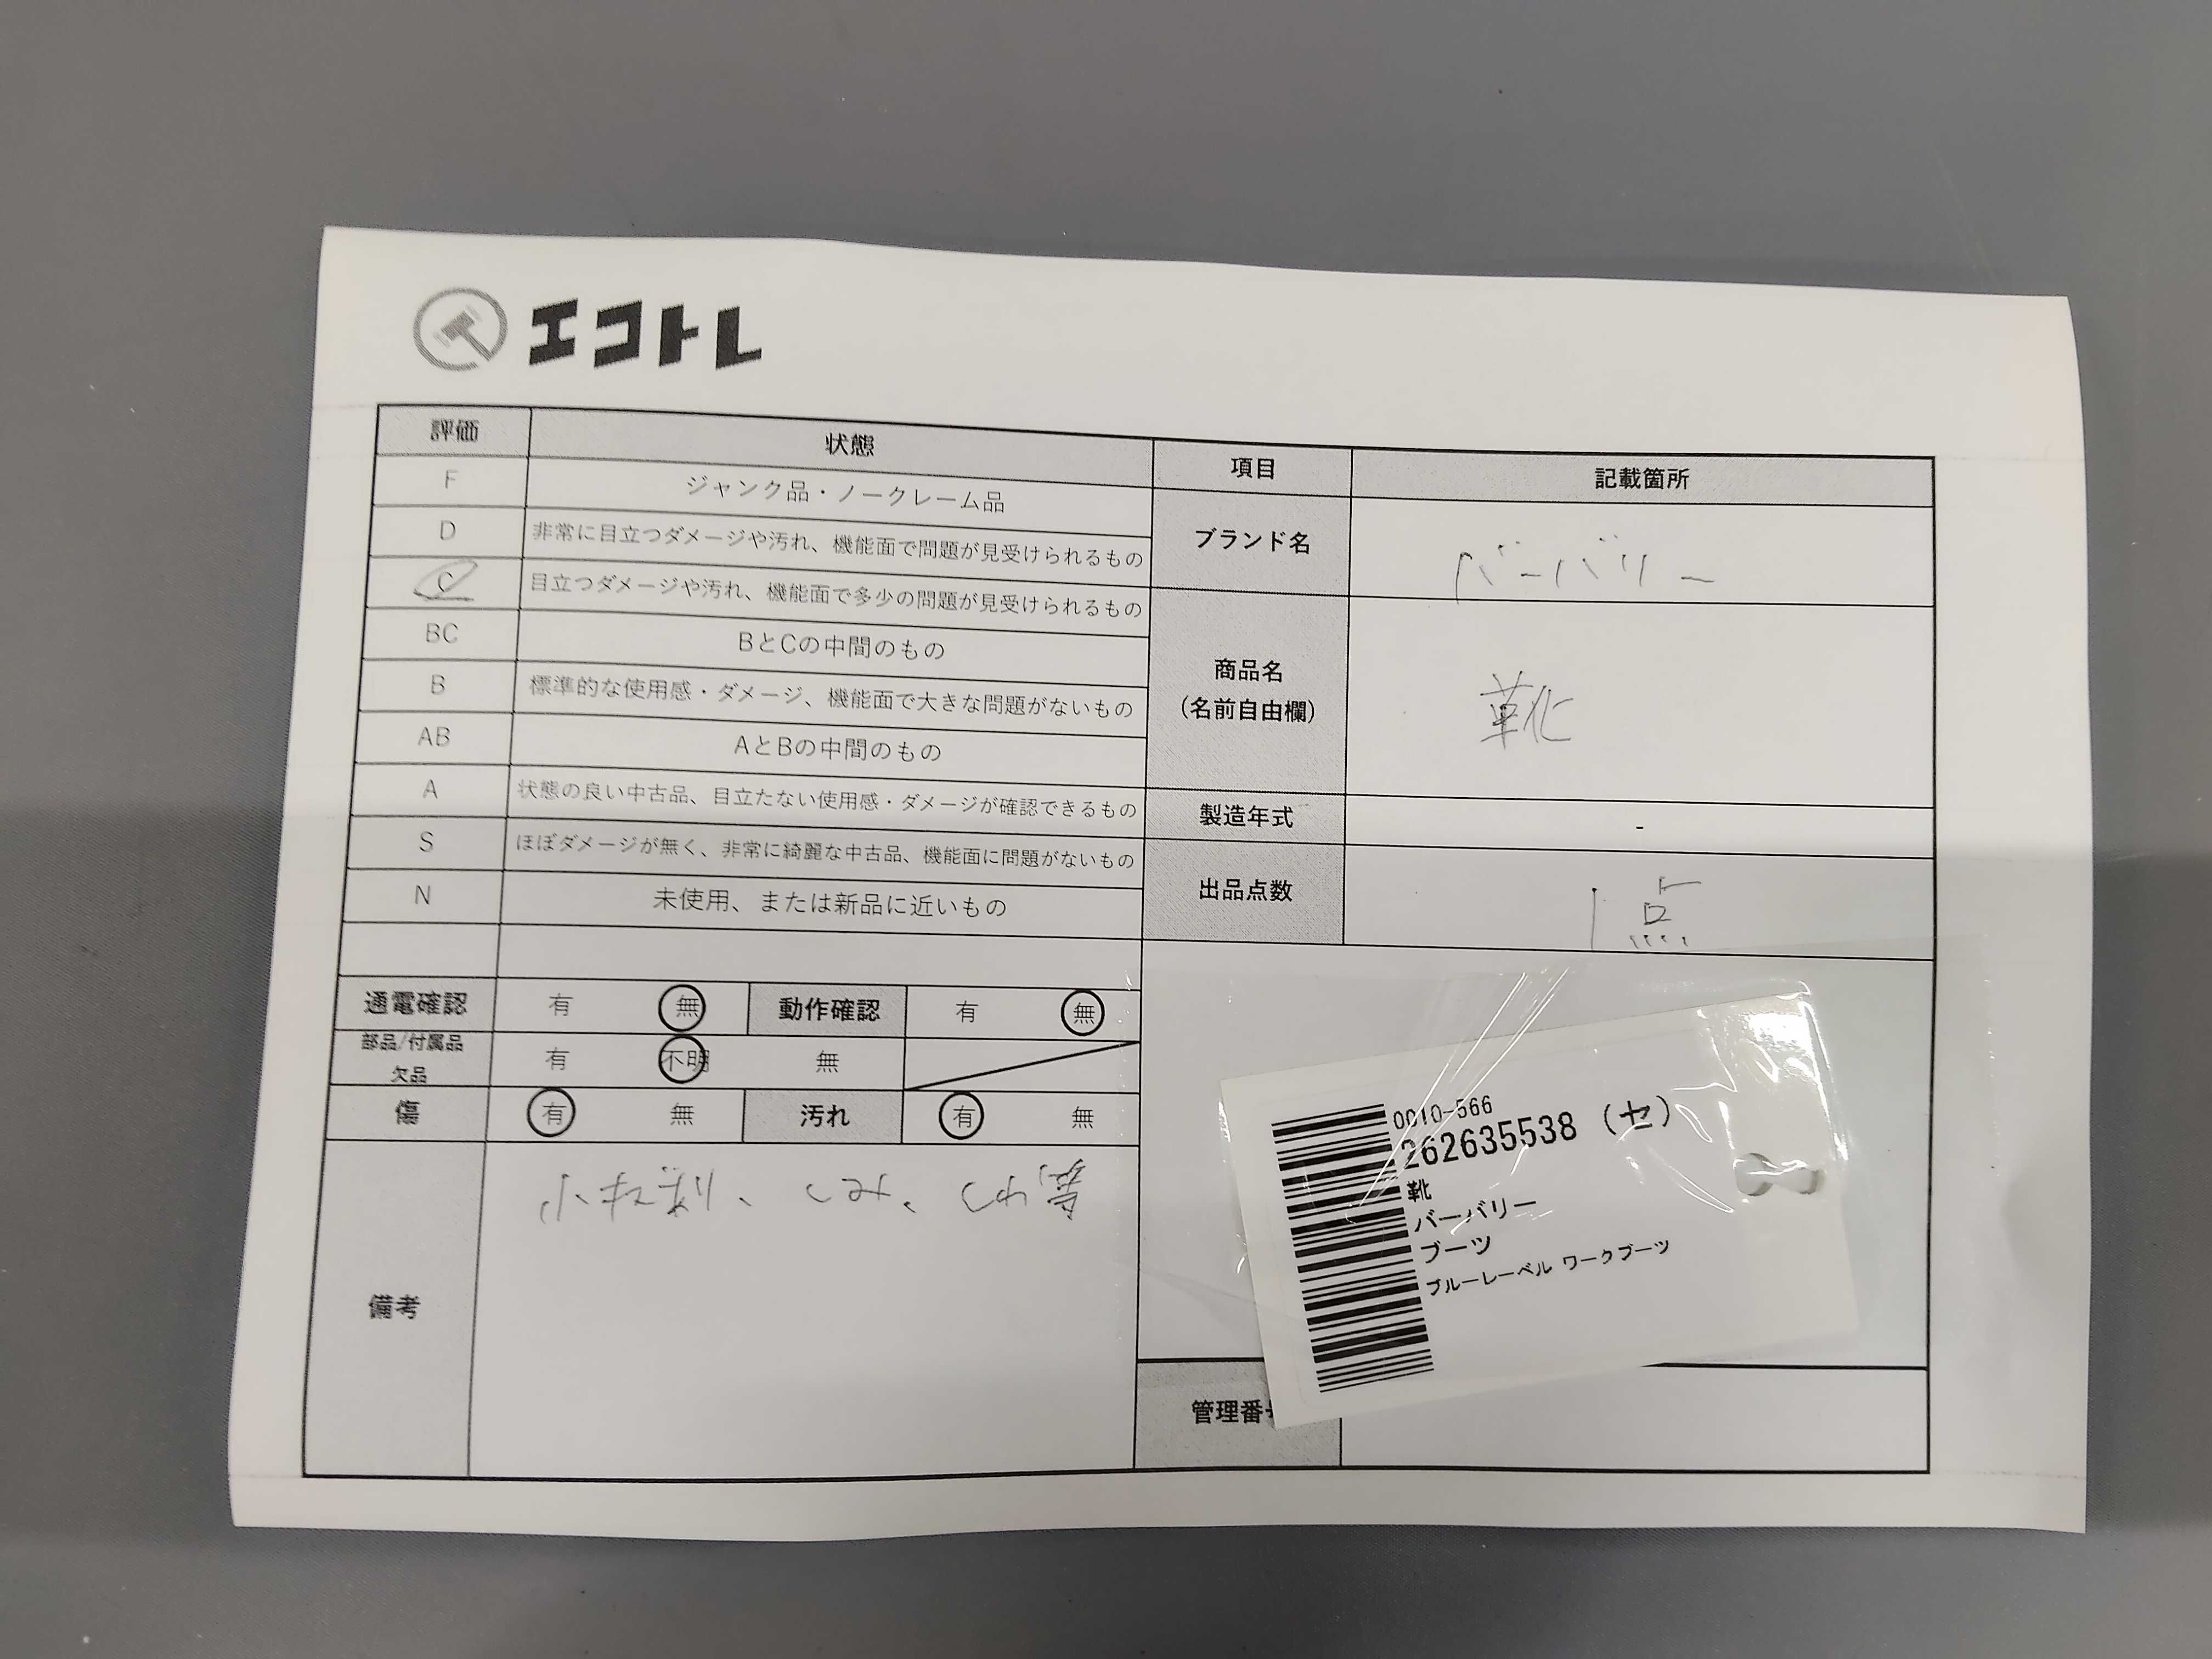 エコトレ
評価 状態 項目 記載箇所
F ジャンク品・ノークレーム品
D 非常に目立つダメージや汚れ、機能面で問題が見受けられるもの
C 目立つダメージや汚れ、機能面で多少の問題が見受けられるもの
BC BとCの中間のもの
B 標準的な使用感・ダメージ、機能面で大きな問題がないもの
AB AとBの中間のもの
A 状態の良い中古品、目立たない使用感・ダメージが確認できるもの
S ほぼダメージが無く、非常に綺麗な中古品、機能面に問題がないもの
N 未使用、または新品に近いもの
ブランド名 バーバリー
商品名
(名前自由欄) 靴
製造年式 -
出品点数 1点
通電確認 有 無 動作確認 有 無
部品/付属品
欠品 有 不明 無
傷 有 無 汚れ 有 無
備考
0010-566
262635538 (セ)
靴
バーバリー
ブーツ
ブルーレーベル ワークブーツ
管理番